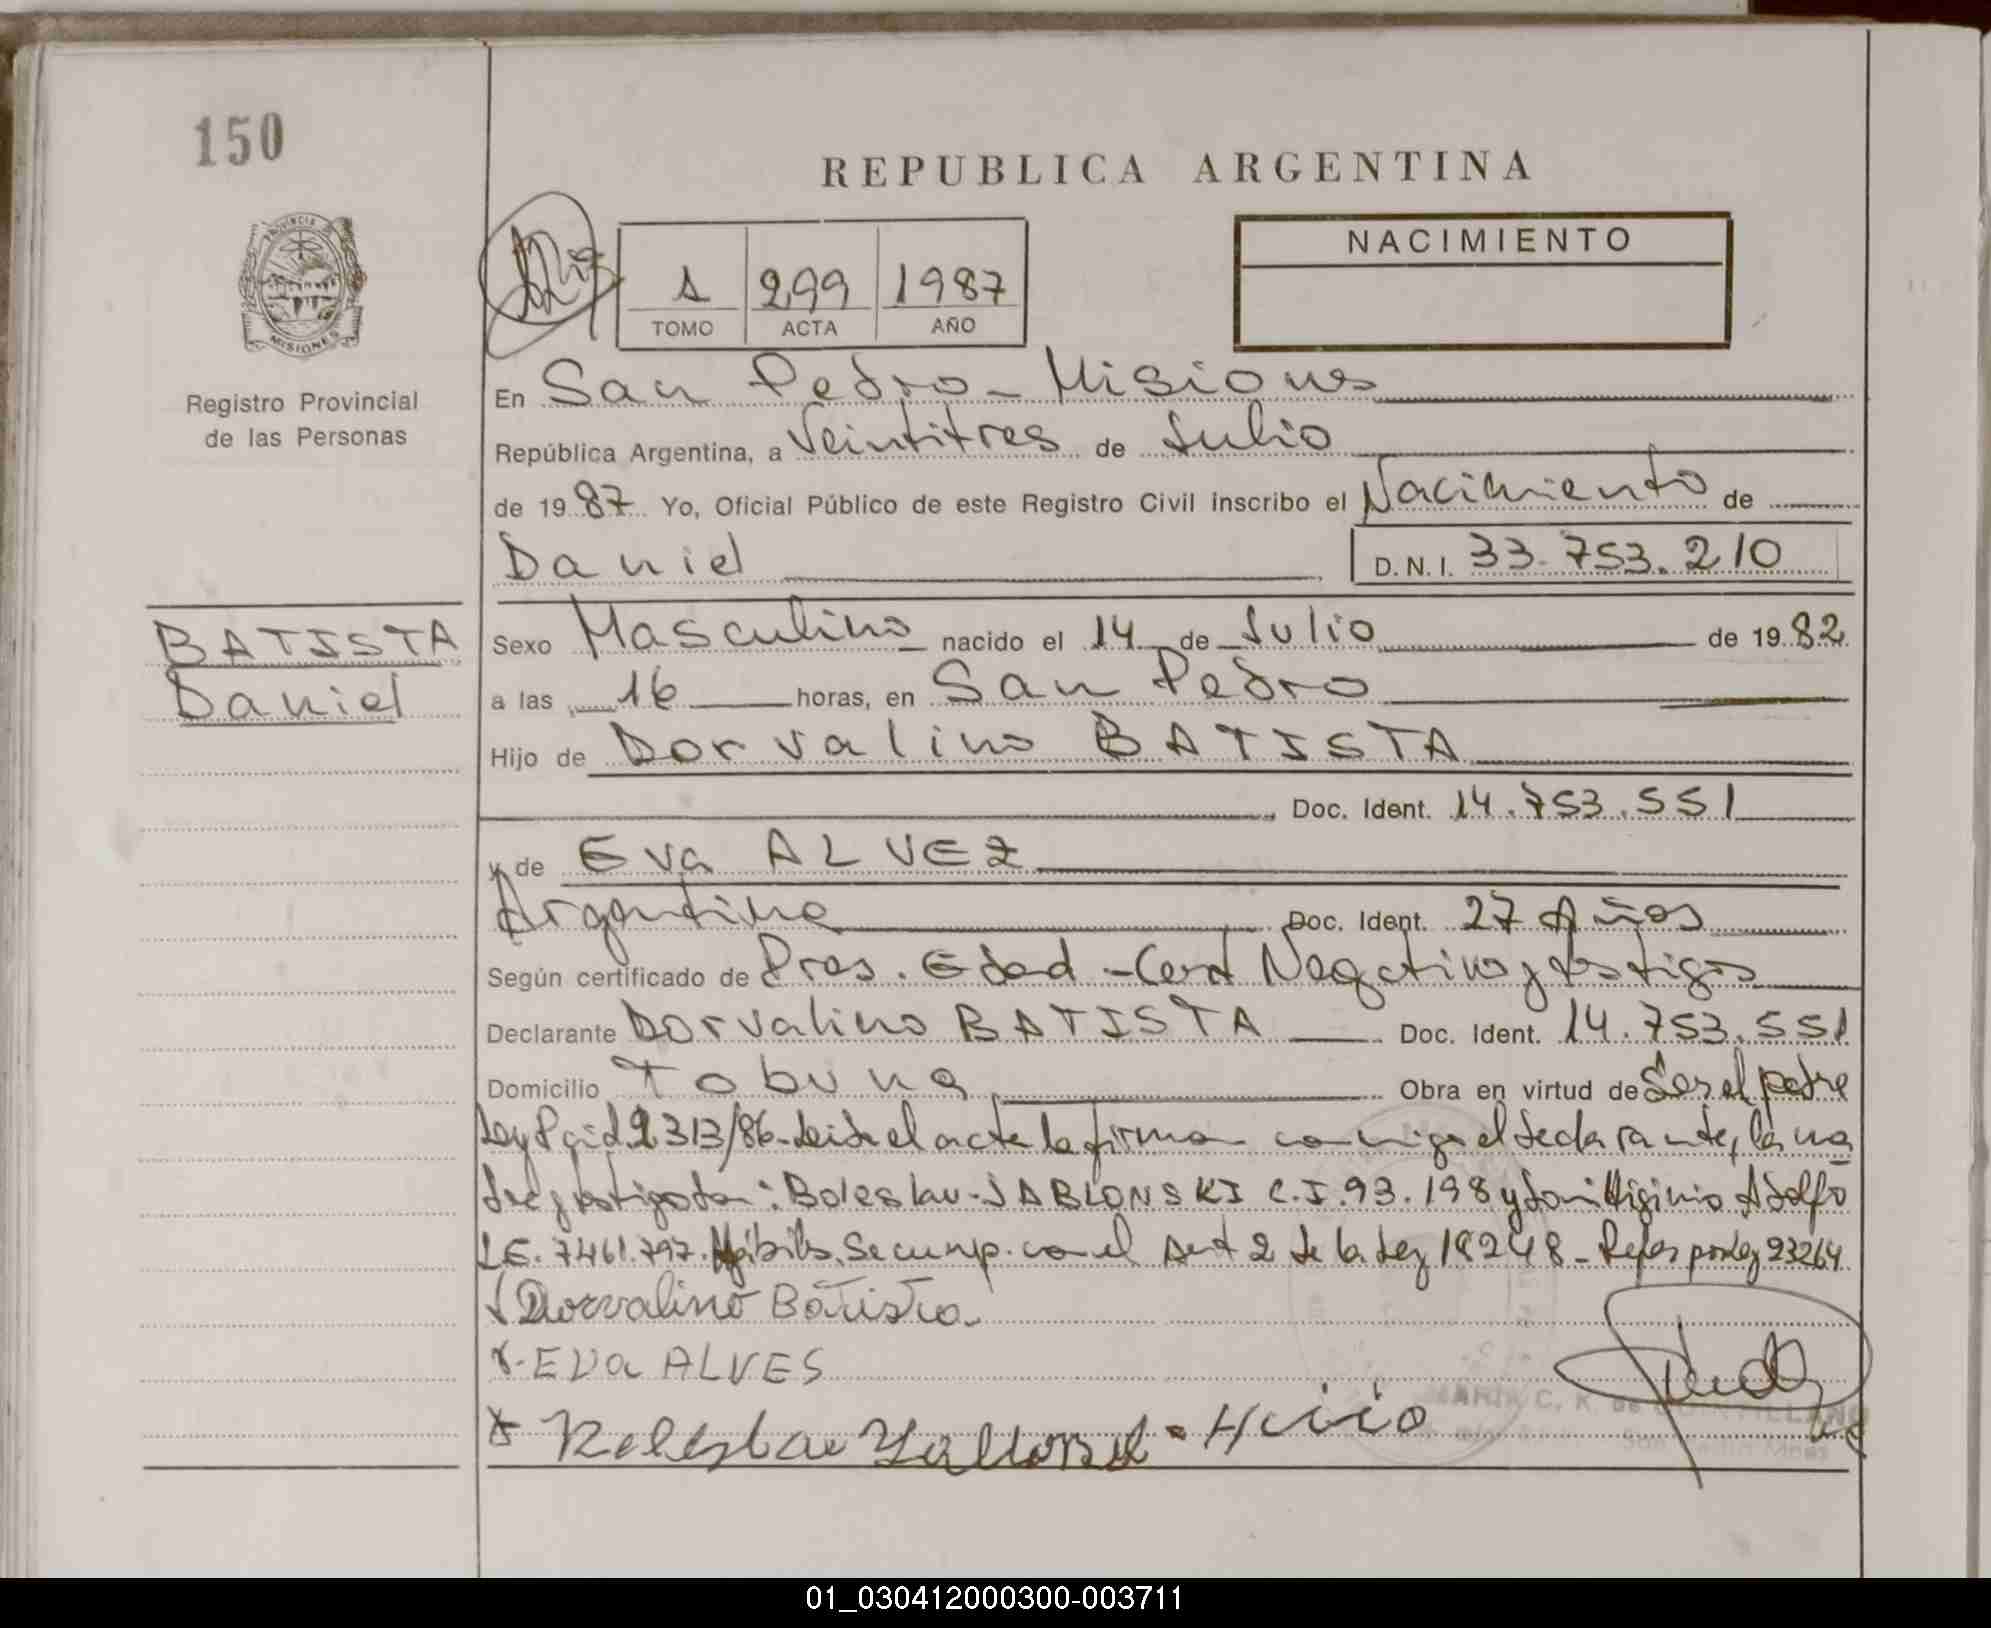 150
REPUBLICA ARGENTINA
PROVINCIA DE
MISIONES
Registro Provincial
de las Personas
1 299 1987
TOMO ACTA AÑO
NACIMIENTO
En San Pedro - Misiones
República Argentina, a Veintitres de Julio
de 1987 Yo, Oficial Público de este Registro Civil inscribo el Nacimiento de
Daniel D.N.I. 33.753.210
BATISTA
Daniel
Sexo Masculino nacido el 14 de Julio de 1982
a las 16 horas, en San Pedro
Hijo de Dorvalino BATISTA
Doc. Ident. 14.753.551
y de Eva ALVEZ
Argentina Doc. Ident. 27 Años
Según certificado de Pres. Edad - Cert Negativo y testigos
Declarante Dorvalino BATISTA Doc. Ident. 14.753.551
Domicilio Tobuna Obra en virtud de Ser el padre
Ley 2313/86 - Leida el acta la firman conmigo el declarante, la ma
dre y testigos: Boleslau JABLONSKI C.I. 93.198 y Higinio Adolfo
LE. 7461.797. Hábiles. Se cump. con el Art 2 de la Ley 18248 - por Ley 23264
Dorvalino Batista
x - EVa ALVES
MARIA C. K. de QUINTILLAN
01_030412000300-003711